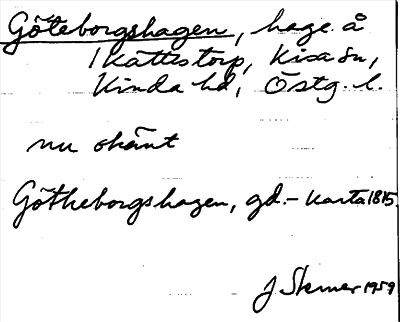 Göteborgshagen, hage å
1 Kättestorp, Kisa sn,
Kinda hd, Östg. l.
nu okänt
Götheborgshagen, gd.- karta 1815.
J. Skener 1959